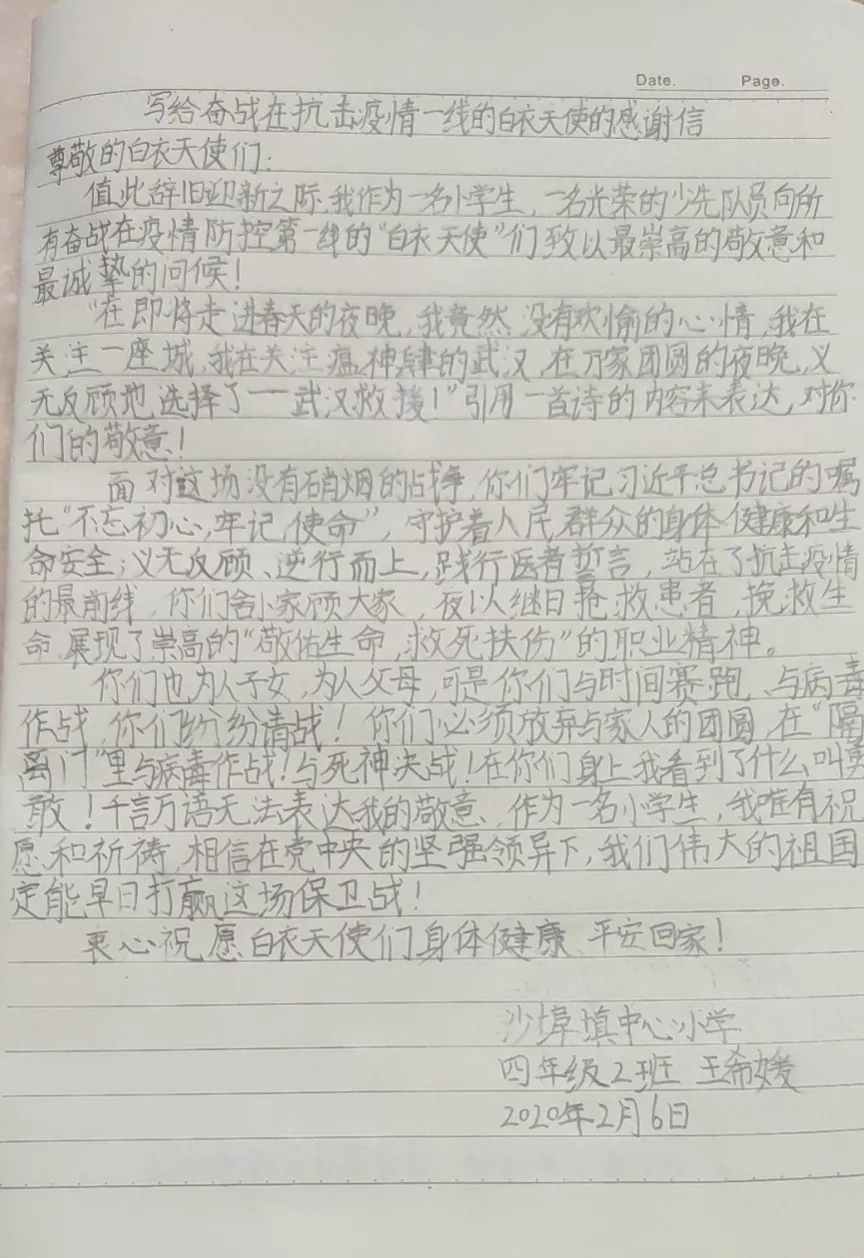 Date.　Page.
写给奋战在抗击疫情一线的白衣天使的感谢信
尊敬的白衣天使们：
值此辞旧迎新之际，我作为一名小学生，一名光荣的少先队员向所
有奋战在疫情防控第一线的“白衣天使”们致以最崇高的敬意和
最诚挚的问候！
“在即将走进春天的夜晚，我竟然，没有欢愉的心情，我在
关注一座城，我在关注瘟神肆的武汉，在万家团圆的夜晚，义
无反顾地选择了——武汉救援！”引用一首诗的内容来表达，对你
们的敬意！
面对这场没有硝烟的战争，你们牢记习近平总书记的嘱
托“不忘初心，牢记使命”，守护着人民群众的身体健康和生
命安全；义无反顾、逆行而上，践行医者誓言，站在了抗击疫情
的最前线，你们舍小家顾大家，夜以继日抢救患者，挽救生
命，展现了崇高的“敬佑生命，救死扶伤”的职业精神。
你们也为人子女，为人父母，可是你们与时间赛跑、与病毒
作战，你们纷纷请战！你们必须放弃与家人的团圆，在“隔
离门”里与病毒作战！与死神决战！在你们身上我看到了什么叫勇
敢！千言万语无法表达我的敬意，作为一名小学生，我唯有祝
愿和祈祷，相信在党中央的坚强领导下，我们伟大的祖国
定能早日打赢这场保卫战！
衷心祝愿白衣天使们身体健康、平安回家！
沙埠填中心小学
四年级2班 王希媛
2020年2月6日